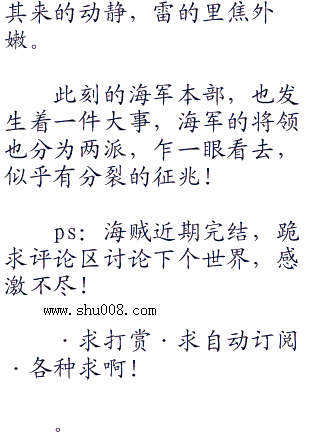 其来的动静，雷的里焦外
嫩。
此刻的海军本部，也发
生着一件大事，海军的将领
也分为两派，乍一眼看去，
似乎有分裂的征兆！
ps：海贼近期完结，跪
求评论区讨论下个世界，感
激不尽！
www.shu008.com
·求打赏·求自动订阅
·各种求啊！
。